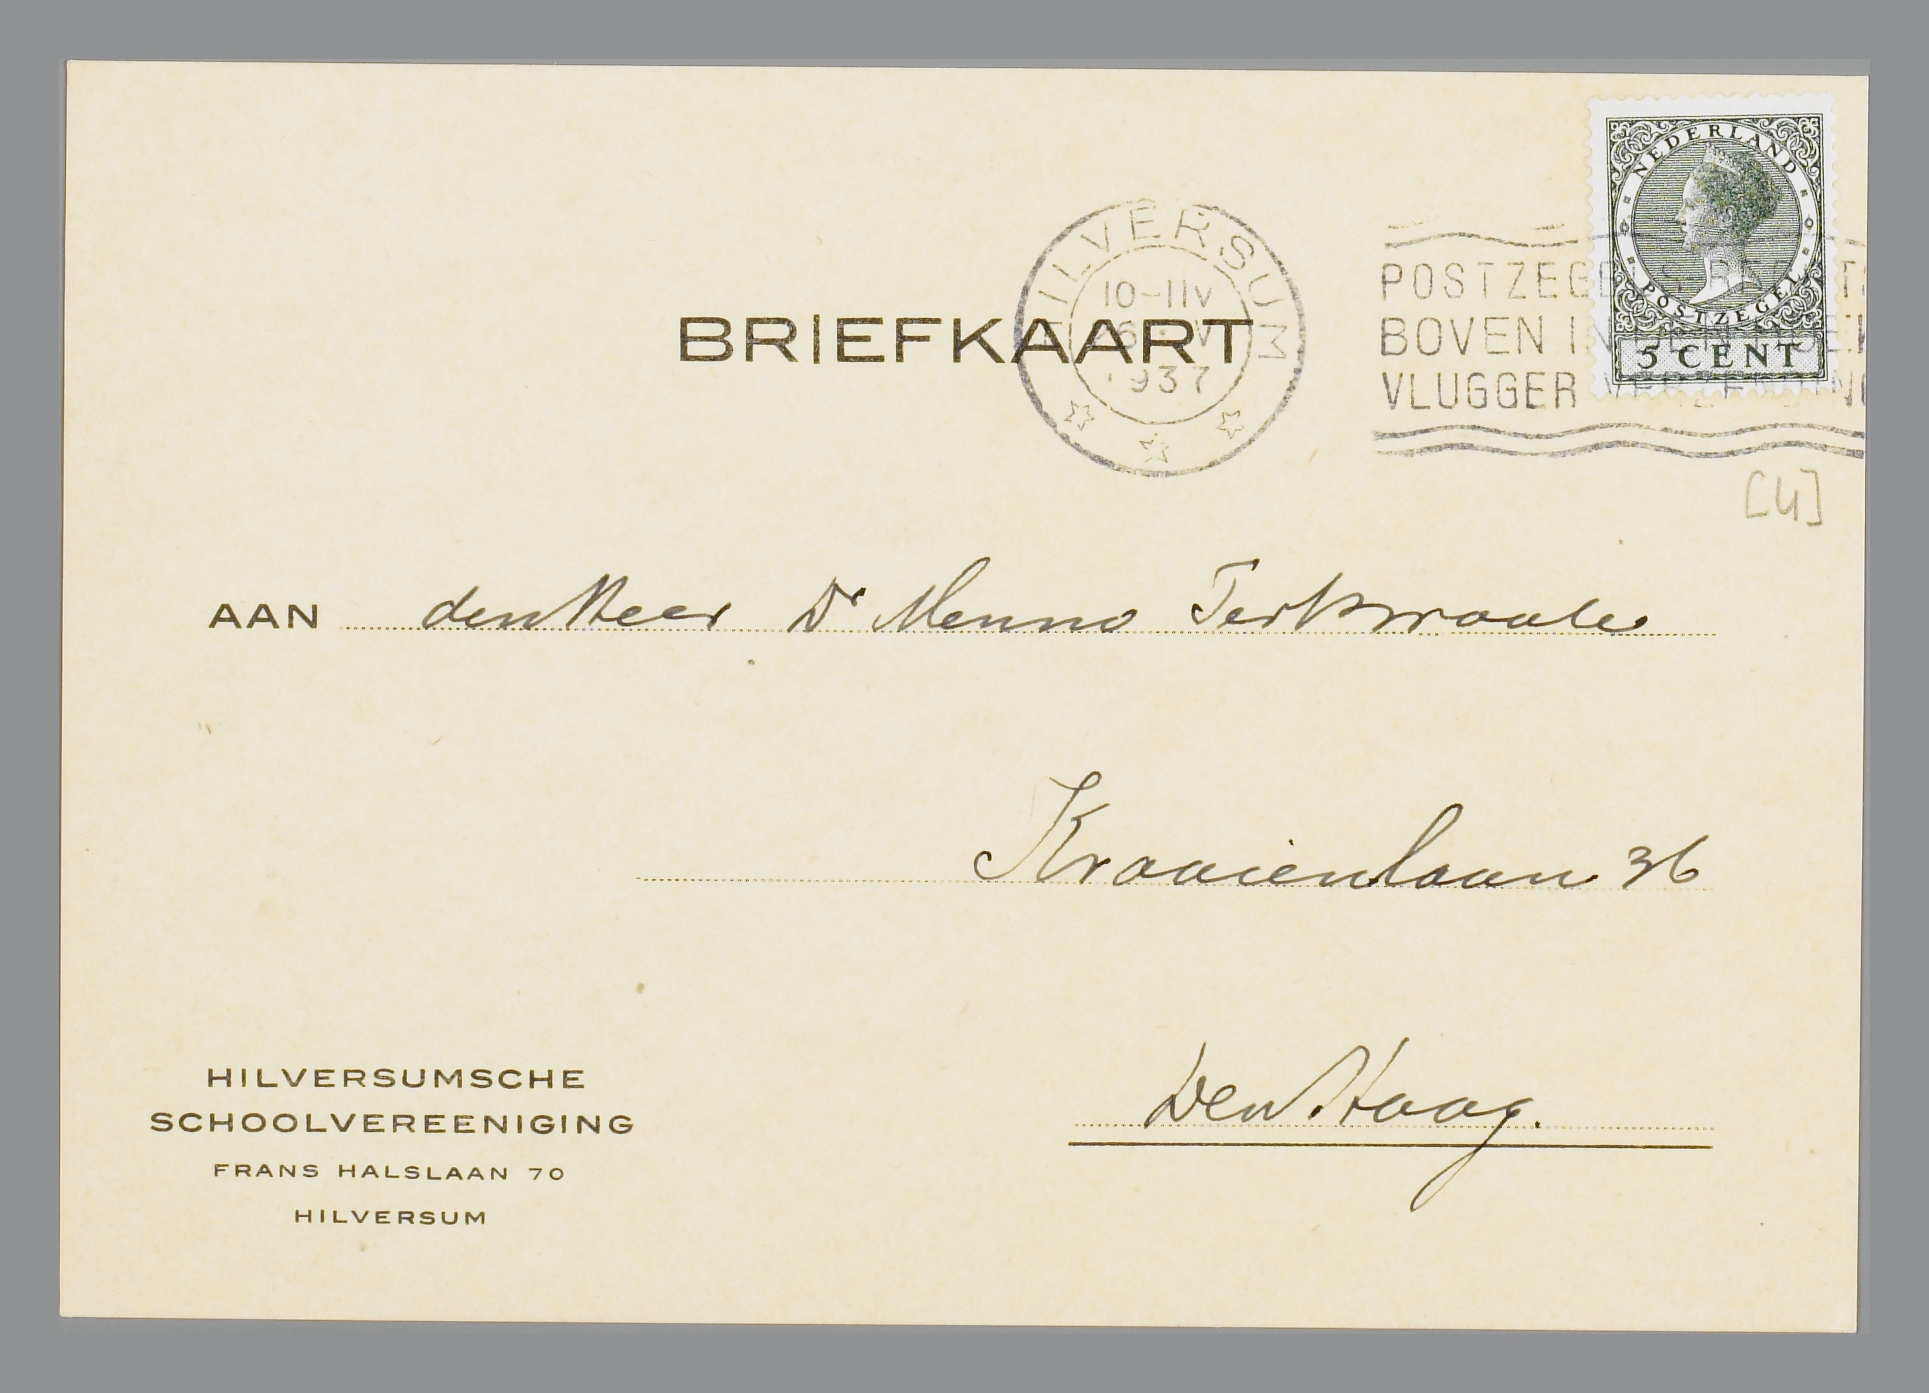 NEDERLAND
POSTZEGEL
5 CENT
HILVERSUM
10-11V
1937
POSTZEGELS
BOVEN IN
VLUGGER VERZENDING
BRIEFKAART
[4]
AAN den Heer Dr Menno Terbraak
Kraaienlaan 36
Den Haag.
HILVERSUMSCHE
SCHOOLVEREENIGING
FRANS HALSLAAN 70
HILVERSUM